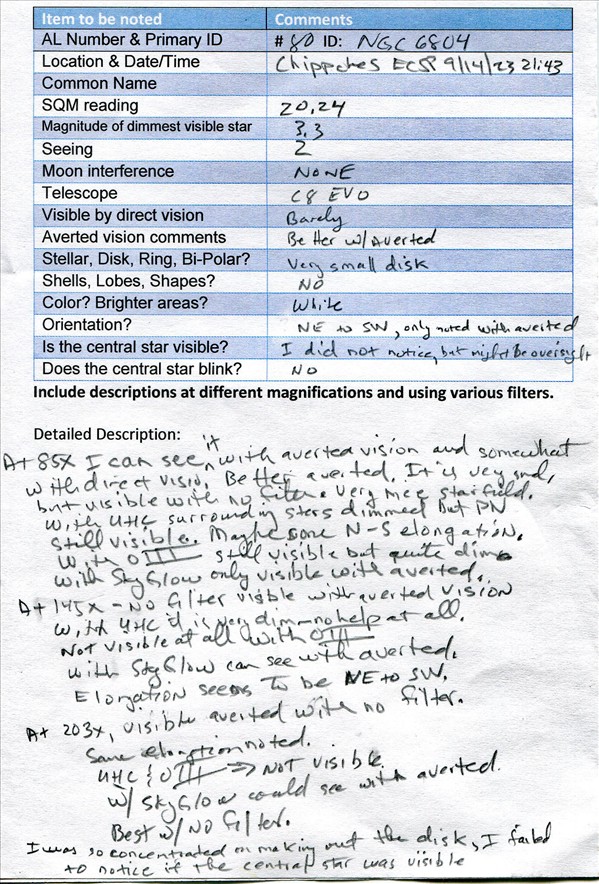 Item to be noted Comments
AL Number & Primary ID # 80 ID: NGC 6804
Location & Date/Time Chippokes ECSP 9/14/23 21:43
Common Name
SQM reading 20.24
Magnitude of dimmest visible star 3.3
Seeing 2
Moon interference NONE
Telescope C8 EVO
Visible by direct vision Barely
Averted vision comments Better w/ Averted
Stellar, Disk, Ring, Bi-Polar? Very small disk
Shells, Lobes, Shapes? NO
Color? Brighter areas? White
Orientation? NE to SW, only noted with averted
Is the central star visible? I did not notice, but might be oversight
Does the central star blink? NO
Include descriptions at different magnifications and using various filters.
Detailed Description:
At 85X I can see it with averted vision and somewhat
with direct vision, Better averted. It is very small,
but visible with no filter. Very nice starfield.
With UHC surrounding stars dimmed but PN
still visible. Maybe some N-S elongation.
With OIII still visible but quite dim.
With SkyGlow only visible with averted.
At 145x - No filter visible with averted vision
With UHC it is very dim - no help at all.
Not visible at all with OIII
With SkyGlow can see with averted.
Elongation seems to be NE to SW.
At 203x, visible averted with no filter.
Same elongation noted.
UHC & OIII => Not visible
W/ SkyGlow could see with averted.
Best w/ NO filter.
I was so concentrated on making out the disk, I failed
to notice if the central star was visible